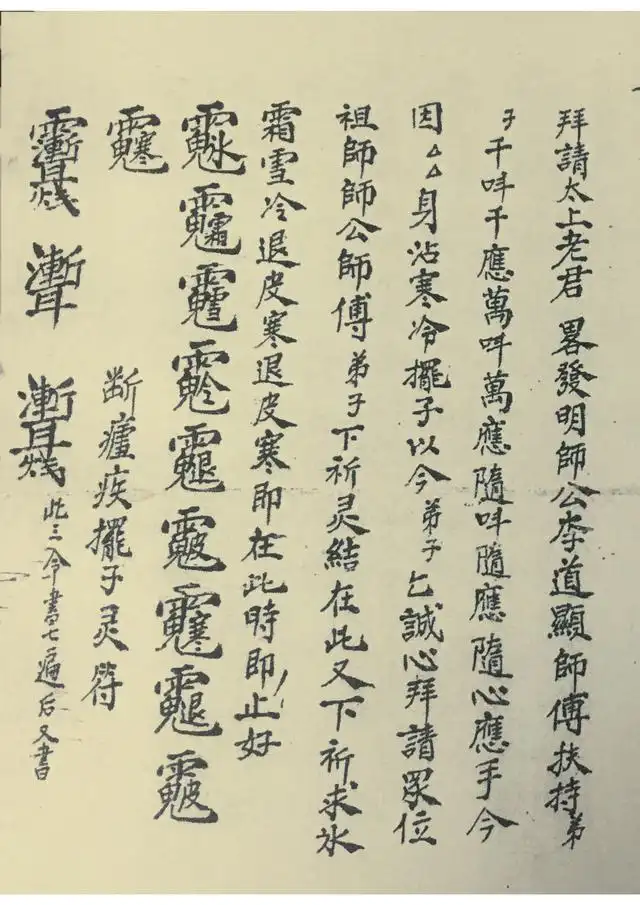 拜請太上老君 畧發明師公李道顯師傅扶持弟
子千呌千應萬呌萬應隨呌隨應隨心應手今
因△△身沾寒冷擺子以今弟子乞誠心拜請眾位
祖師師公師傅弟子下祈灵結在此又下祈求氷
霜雪冷退皮寒退皮寒即在此時即止好
断瘧疾擺子灵符
此三令書七遍后又書